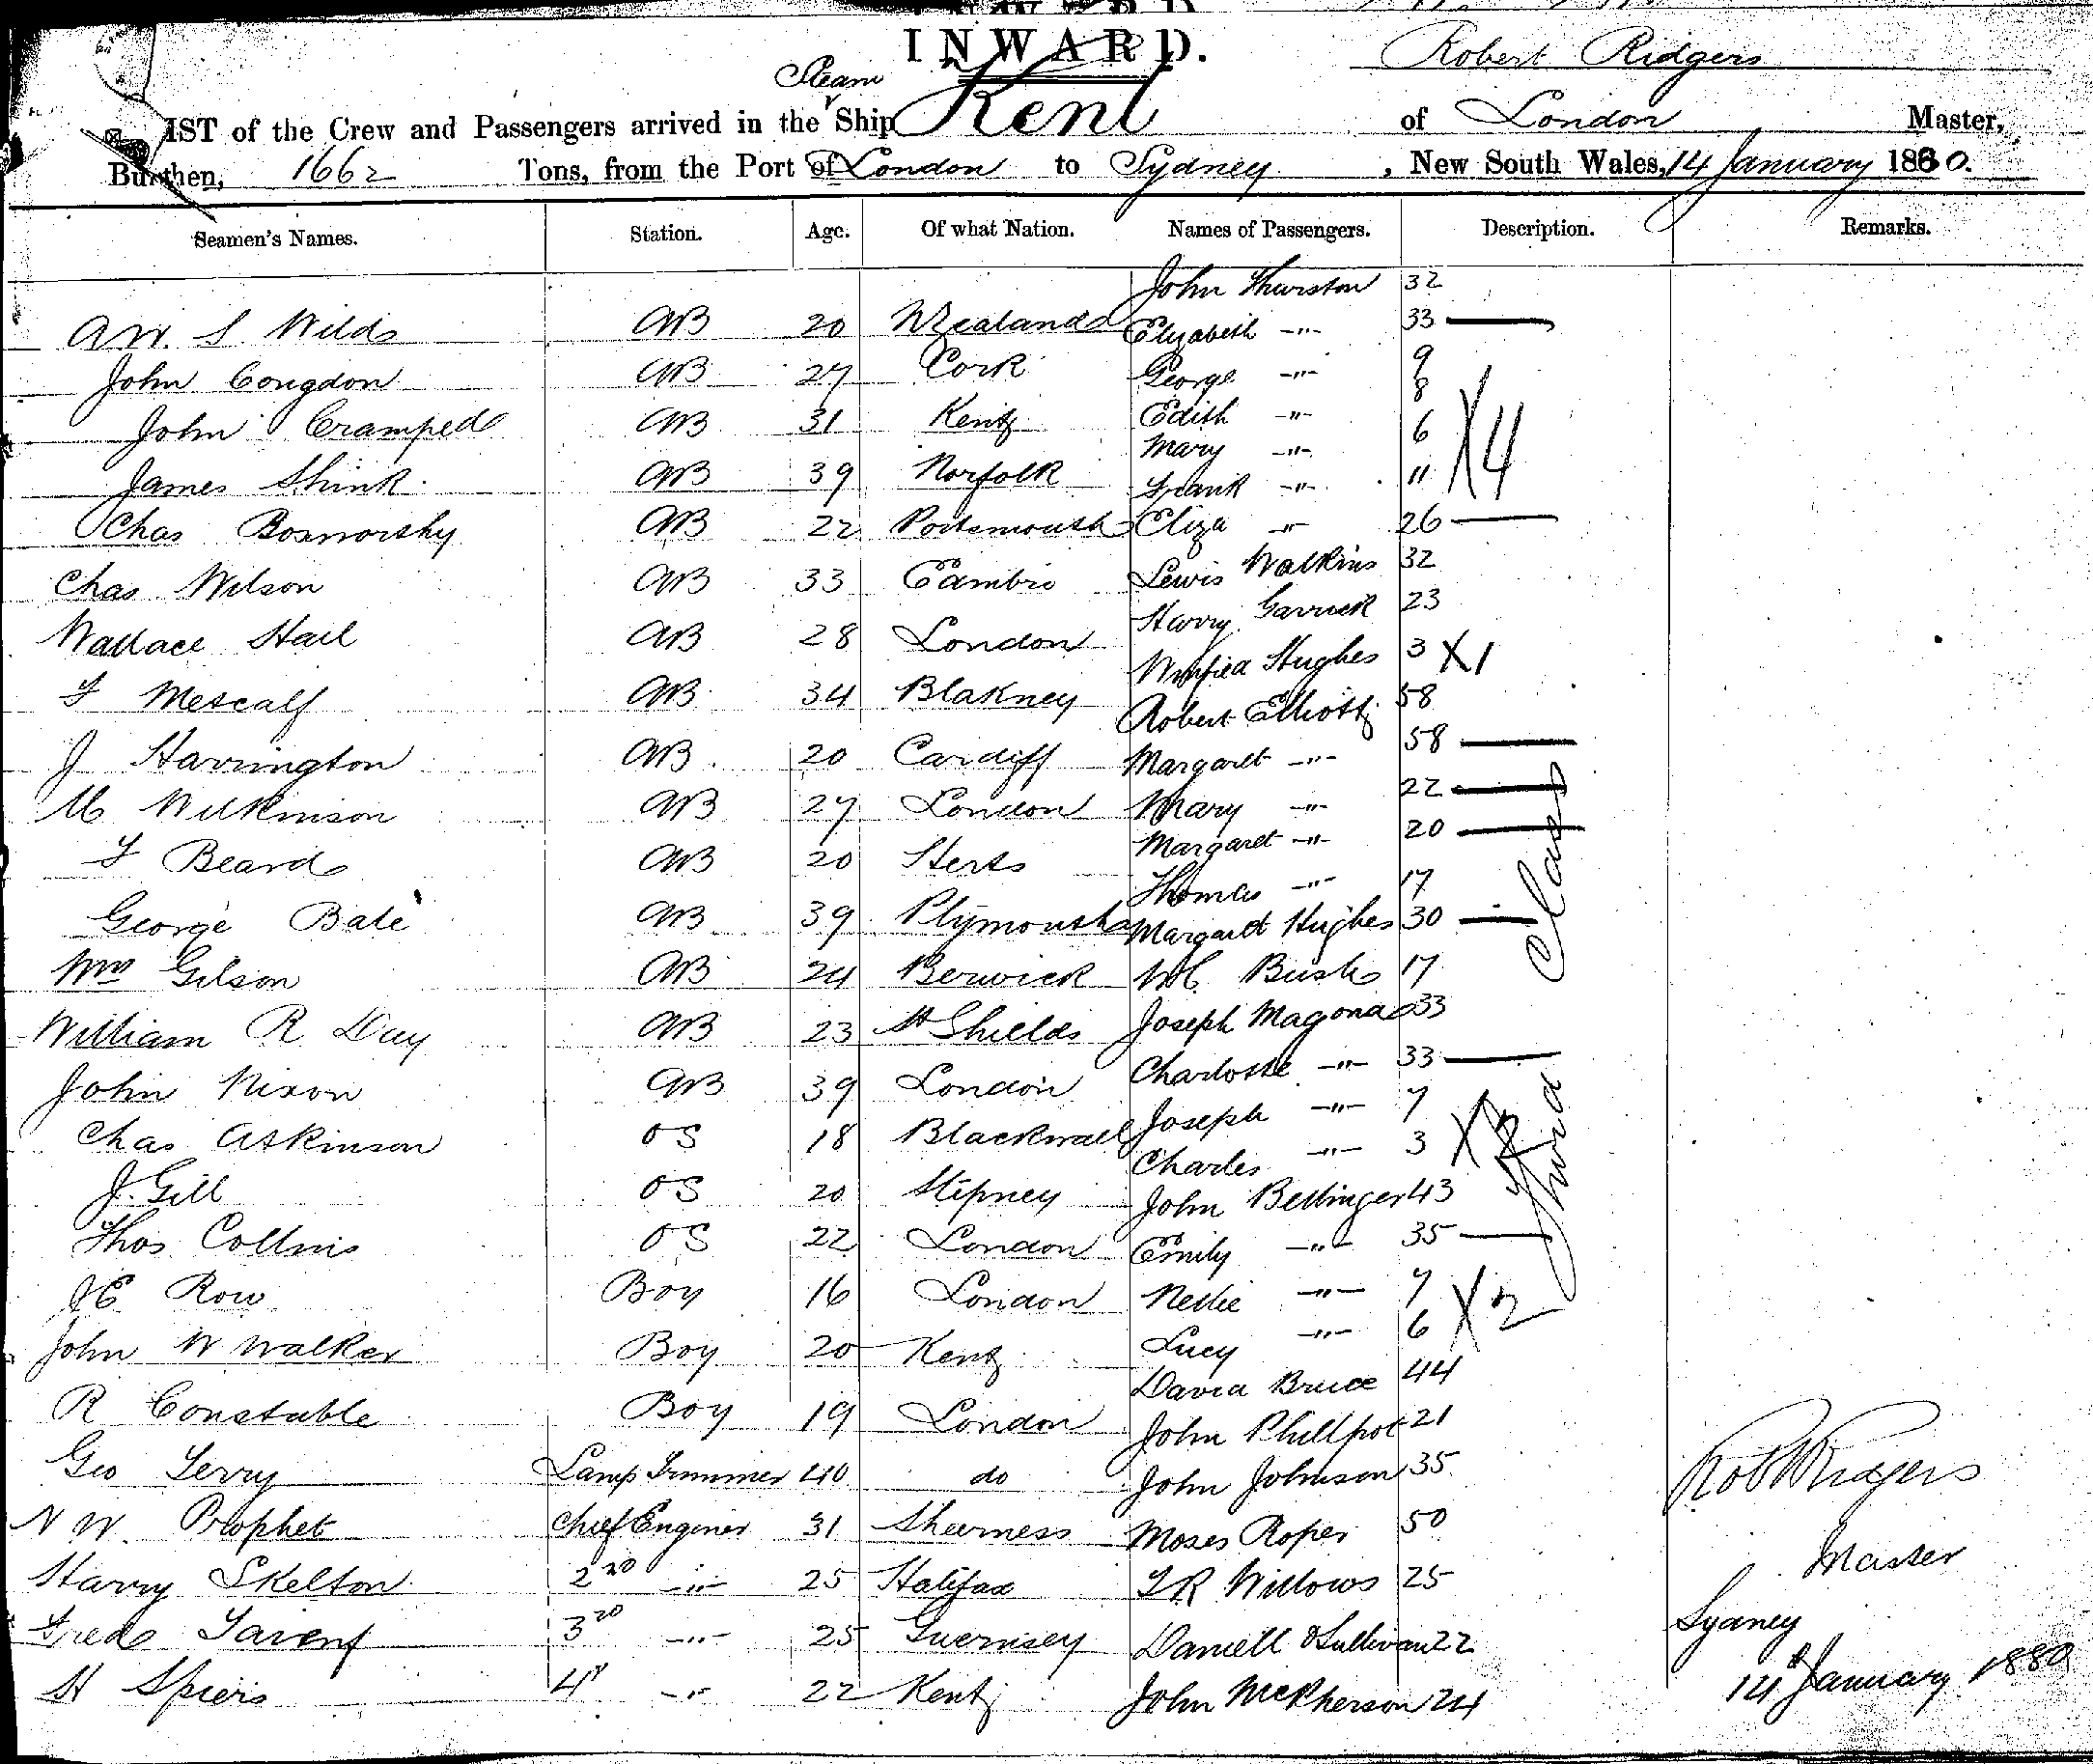 INWARD.
Robert Ridgers
Steam
IST of the Crew and Passengers arrived in the Ship Kent of London Master,
Burthen, 1662 Tons, from the Port of London to Sydney, New South Wales, 14 January 1880.
Seamen's Names. Station. Age. Of what Nation. Names of Passengers. Description. Remarks.
John Thurston 32
AW. S. Wilds AB 20 N Zealand Elizabeth -"- 33
John Congdon AB 27 Cork George -"- 9
John Cramped AB 31 Kent Edith -"- 8
Mary -"- 6 X4
James Shink AB 39 Norfolk Frank -"- 11
Chas AB 22 Portsmouth Eliza -"- 26
Chas Wilson AB 33 Lewis Watkins 32
Harry Garrick 23
Wallace Hall AB 28 London Hughes 3 X1
F Metcalf AB 34 Blakney Robert Elliott 58
J Harrington AB 20 Cardiff Margaret -"- 58
M Wilkinson AB 27 London Mary -"- 22
F Beard AB 20 Herts Margaret -"- 20
Thomas -"- 17
George Bate AB 39 Plymouth Margaret Hughes 30 Class
Wm Gilson AB 24 Berwick Bush 17
William R Day AB 23 Shields Joseph Magona 33
John Nixon AB 39 London Charlotte -"- 33
Chas Atkinson OS 18 Blackwall Joseph -"- 7
Charles -"- 3 Third
J. Gill OS 20 Stepney John Bettinger 43
Thos Collins OS 22 London Emily -"- 35
Row Boy 16 London Nellie -"- 7
John W Walker Boy 20 Kent Lucy -"- 6 X2
David Bruce 44
R Constable Boy 19 London John Phillpot 21
Geo Terry Lamp Trimmer 40 do John Johnson 35
N W. Prophet Chief Enginer 31 Sheerness Moses Roper 50
Harry Skelton 2nd -"- 25 Halifax Willows 25
Fred 3rd -"- 25 Guernsey Daniell OSullivan 22
H Spiers 4th -"- 22 Kent John McPherson 24
Robt Ridgers
Master
Sydney
14th January 1880